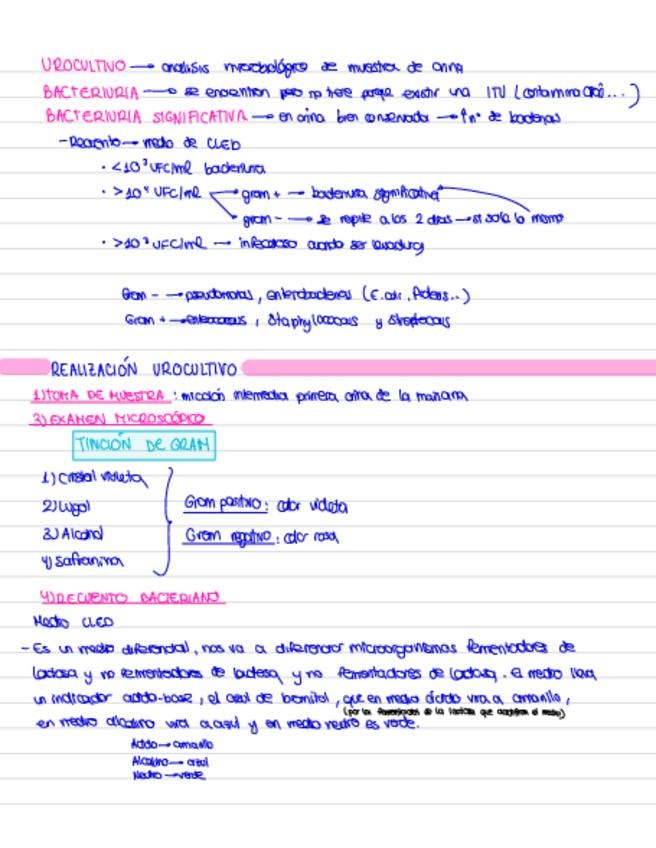 UROCULTIVO → análisis microbiológico de muestra de orina
BACTERIURIA → se encuentran pero no tiene porque existir una ITU (contaminación...)
BACTERIURIA SIGNIFICATIVA → en orina bien conservada → ↑nº de bacterias
- Recuento → medio de CLED
· <10³ UFC/ml bacteriuria
· >10⁴ UFC/ml gram + → bacteriuria significativa
gram - → se repite a los 2 días → si sale lo mismo
· >10³ UFC/ml → infeccioso cuando ser levaduras
Gram - → pseudomonas, enterobacterias (E.coli, Proteus...)
Gram + → enterococcus, Staphylococcus y Streptococcus
REALIZACIÓN UROCULTIVO
1) TOMA DE MUESTRA: micción intermedia primera orina de la mañana
3) EXAMEN MICROSCÓPICO
TINCIÓN DE GRAM
1) Cristal violeta
2) Lugol
Gram positivo: color violeta
3) Alcohol
Gram negativo: color rosa
4) Safranina
4) RECUENTO BACTERIANO
Medio CLED
- Es un medio diferencial, nos va a diferenciar microorganismos fermentadores de
lactosa y no fermentadores de lactosa y no fermentadores de lactosa. El medio lleva
un indicador ácido-base, el azul de bromitol, que en medio ácido vira a amarillo,
(por los fermentadores de la lactosa que acidifican el medio)
en medio alcalino vira a azul y en medio neutro es verde.
Ácido → amarillo
Alcalino → azul
Neutro → verde